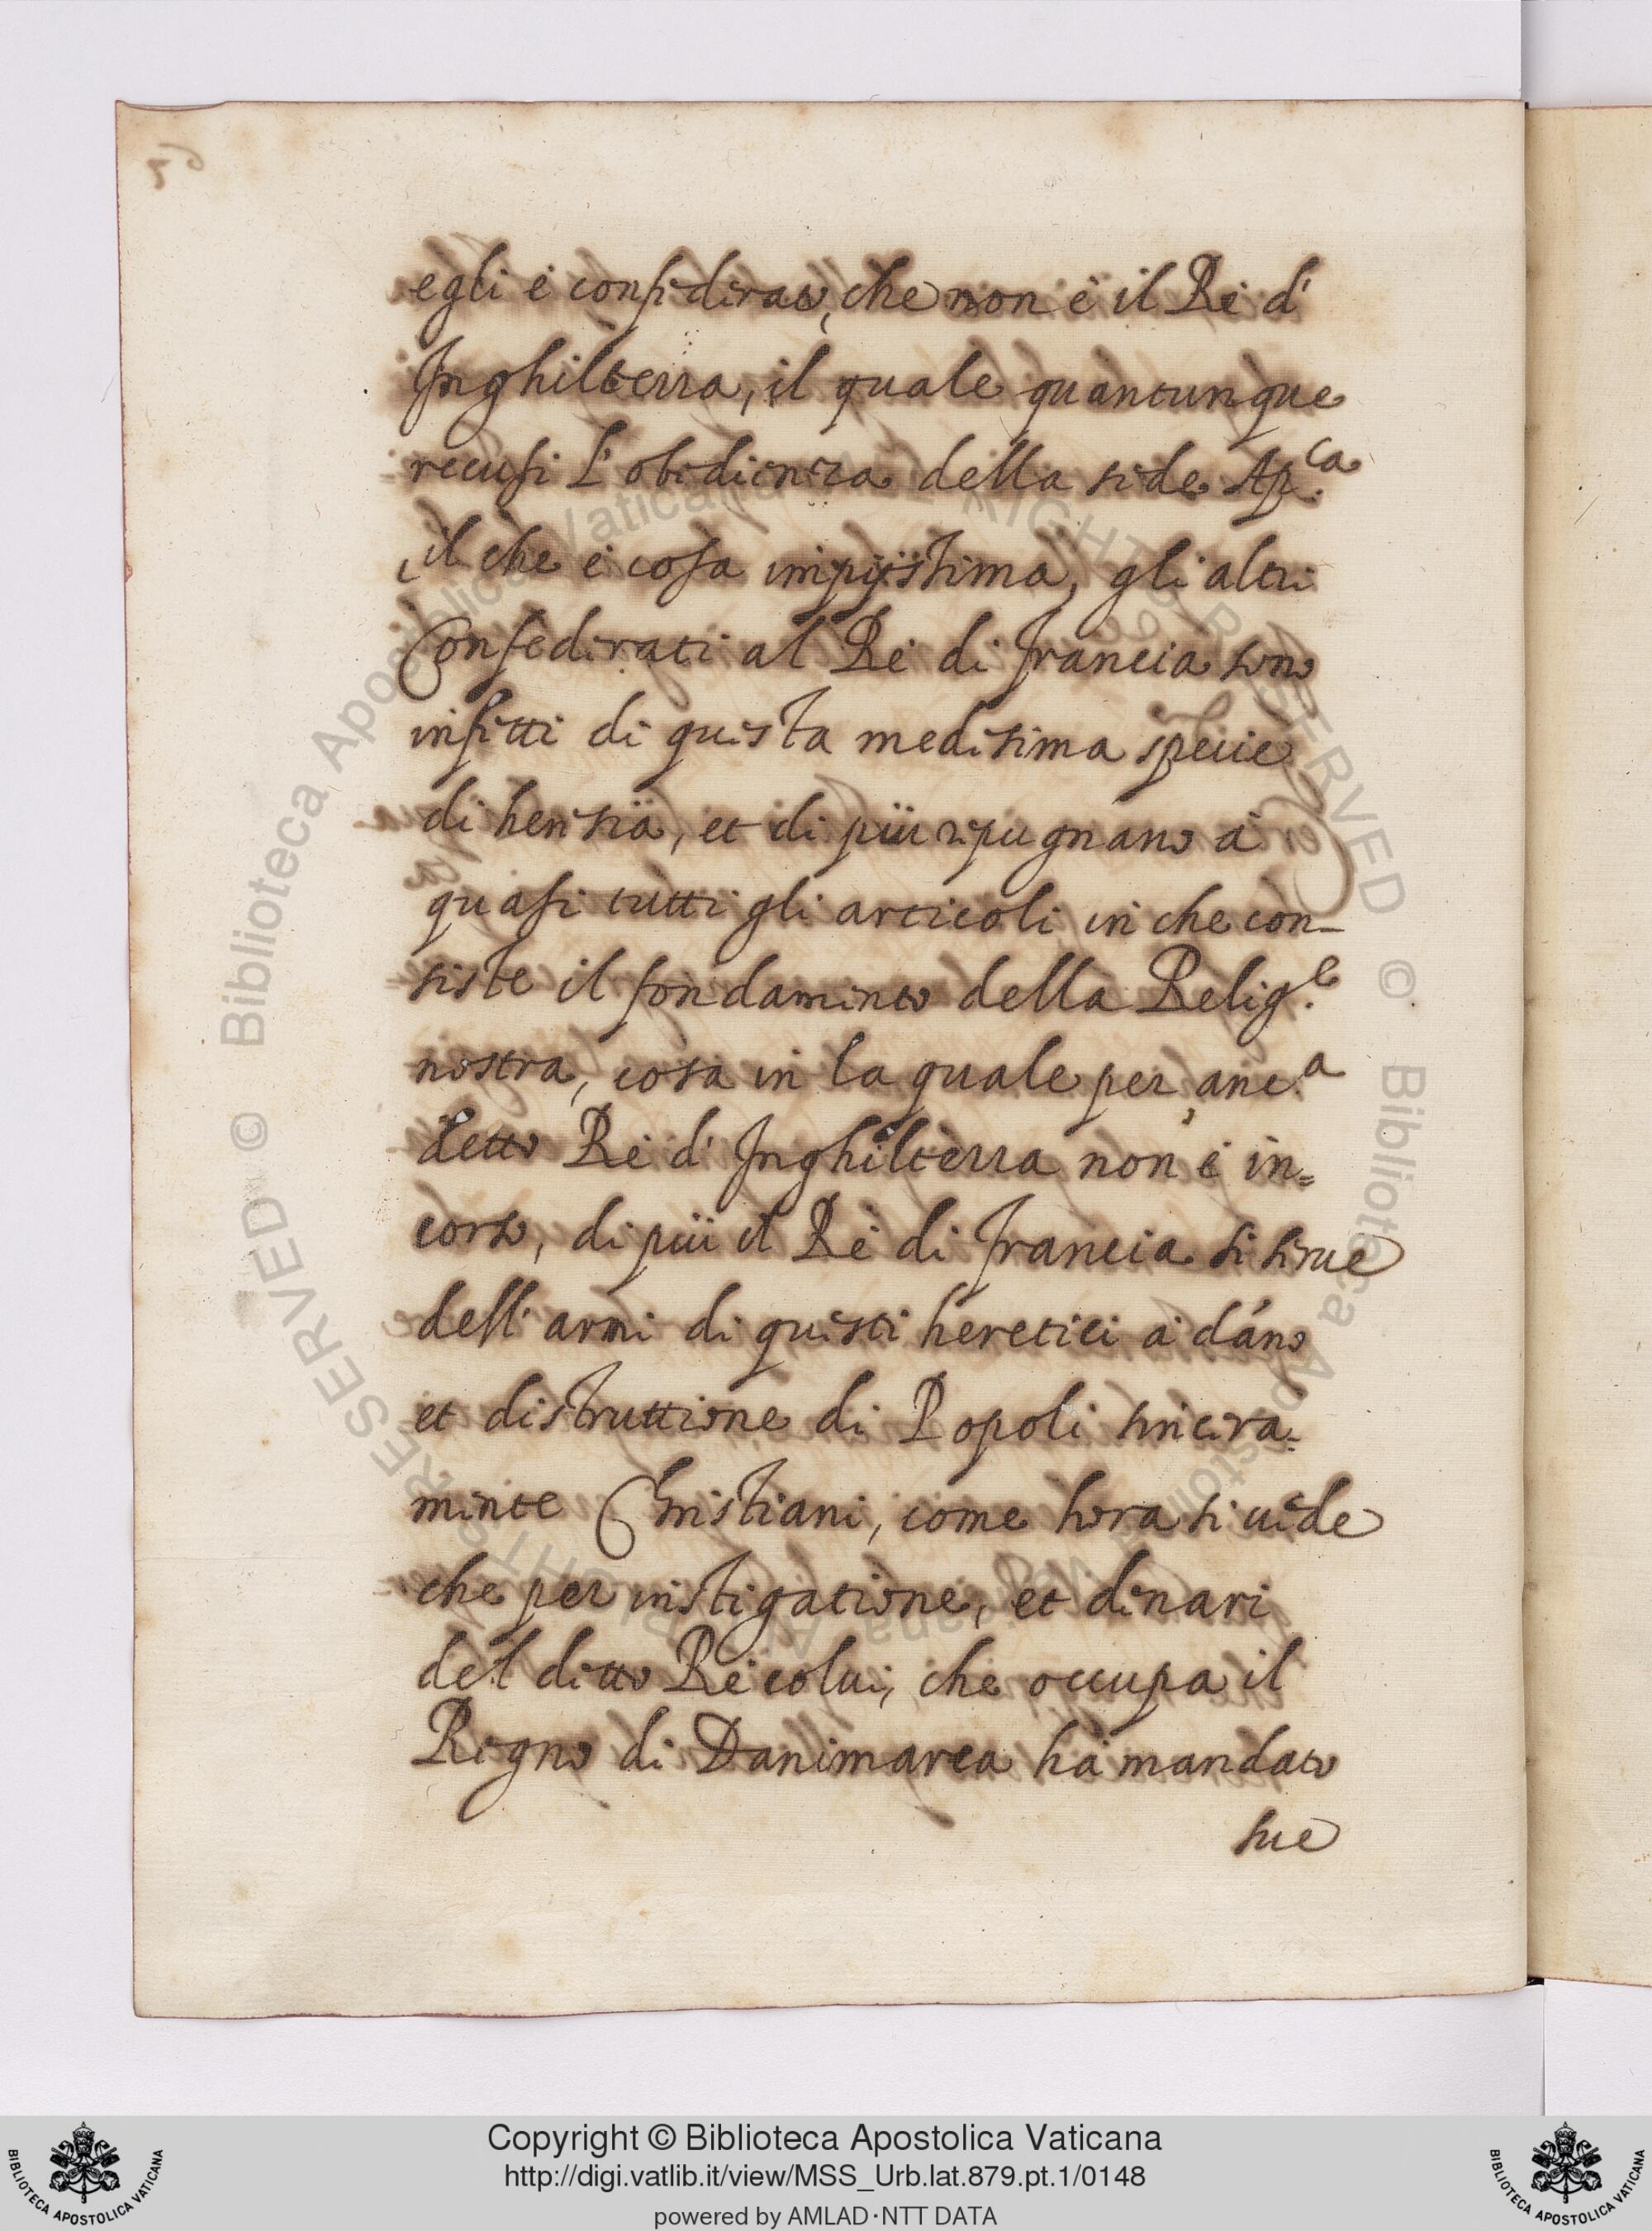 egli è confederato, che non è il Rè d'
Inghilterra, il quale quantunque
recusi l'obedienza della sede Ap.ca
il che è cosa impijssima, gli altri
Confederati al Rè di Francia sono
infetti di questa medesima specie
di heresia, et di più repugnano à
quasi tutti gli articoli in che con-
siste il fondamento della Relig.e
nostra, cosa in la quale per anc.a
detto Rè d'Inghilterra non è in=
corso, di più il Rè di Francia si serue
dell'armi di questi heretici à dáno
et distruttione di Popoli sincera=
mente Christiani, come hora si uede
che per instigatione, et denari
del detto Rè colui, che occupa il
Regno di Danimarca hà mandato
sue
Biblioteca Apostolica Vaticana ALL RIGHTS RESERVED © Biblioteca Apostolica Vaticana ALL RIGHTS RESERVED ©
Copyright © Biblioteca Apostolica Vaticana
http://digi.vatlib.it/view/MSS_Urb.lat.879.pt.1/0148
powered by AMLAD·NTT DATA
BIBLIOTECA APOSTOLICA VATICANA
BIBLIOTECA APOSTOLICA VATICANA